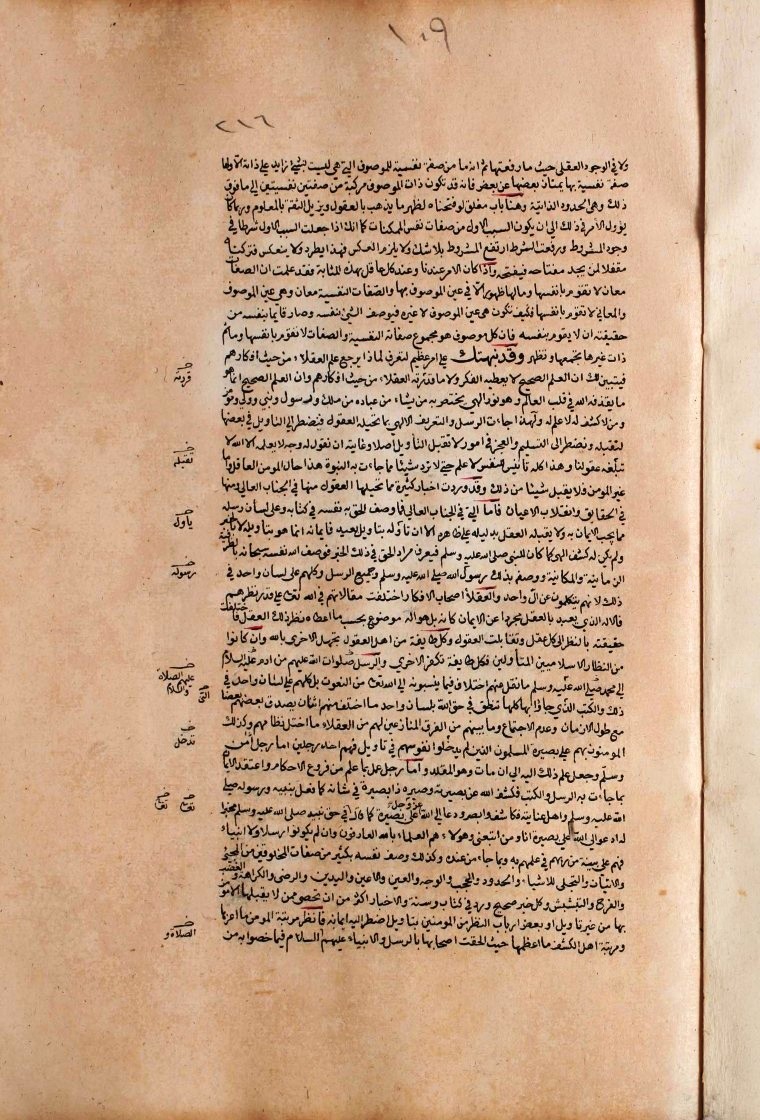 ١٠٩
٢١٦
ولا في الوجود العقلي حيث ما رفعتها ثم انه ما من صفة نفسية للموصوف التي هي ليست بشيء زايد على ذاته الا ولها
صفة نفسية بها يمتاز بعضها عن بعض فانه قد تكون ذات الموصوف مركبة من صفتين نفسيتين الى ما فوق
ذلك وهي الحدود الذاتية وهنا باب مغلق لو فتحناه لظهر ما يذهب بالعقول ويزيل الثقة بالمعلوم وربما كان
يؤول الامر في ذلك الى ان يكون السبب الاول من صفات نفس الممكنات كما انك اذا جعلت السبب الاول شرطا في
وجود المشروط ورفعت الشرط ارتفع المشروط بلا شك ولا يلزم العكس فهذا يطرد ولا ينعكس فتركناه
مقفلا لمن يجد مفتاحه فيفتحه واذا كان الامر عندنا وعند كل عاقل بهذه المثابة فقد علمت ان الصفات
معان لا تقوم بانفسها وما لها ظهور الا في عين الموصوف بها والصفات النفسية معان وهي عين الموصوف
والمعاني لا تقوم بانفسها فكيف تكون هي عين الموصوف لا غيره فيوصف الشيء بنفسه وصار قايما بنفسه من
حقيقته ان لا يقوم بنفسه فان كل موصوف هو مجموع صفاته النفسية والصفات لا تقوم بانفسها وما ثم
ذات غيرها تجمعها وتظهر وقد نبهتك على امر عظيم لتعرف لماذا يرجع علم العقلاء من حيث افكارهم
فيتبين لك ان العلم الصحيح لا يعطيه الفكر ولا ما قدرته العقلاء من حيث افكارهم وان العلم الصحيح انما هو
ما يقذفه الله في قلب العالم وهو نور الهي يختص به من يشاء من عباده من ملك ورسول ونبي وولي ومؤمن
ومن لا كشف له لا علم له ولهذا جاءت الرسل والتعريف الالهي بما تحيله العقول فيضطر الى التاويل في بعضها
لتقبله وتضطر الى التسليم والعجز في امور لا تقبل التأويل اصلا وغايته ان تقول له وجه لا يعلمه الا الله لا
تبلغه عقولنا وهذا كله تانيس للنفس لا علم حتى لا ترد شيئا مما جاءت به النبوة هذا حال المومن العاقل واما
غير المومن فلا يقبل شيئا من ذلك وقد وردت اخبار كثيرة مما تحيلها العقول منها في الجناب العالي ومنها
في الحقايق وانقلاب الاعيان فاما التي في الجناب العالي فما وصف الحق به نفسه في كتابه وعلى لسان رسله
مما يجب الايمان به ولا يقبله العقل بدليله على ظاهره الا ان تاوله بتاويل بعيد فايمانه انما هو بتاويله لا بالخبر
ولم يكن له كشف الهي كما كان للنبي صلى الله عليه وسلم فيعرف مراد الحق في ذلك الخبر فوصف الله نفسه سبحانه بالظرفية
الزمانية والمكانية ووصفه بذلك رسول الله صلى الله عليه وسلم وجميع الرسل وكلهم على لسان واحد في
ذلك لانهم يتكلمون عن ال واحد والعقلا اصحاب الافكار اختلفت مقالاتهم في الله تعالى على قدر نظرهم
فالاله الذي يعبد بالعقل مجردا عن الايمان كانه بل هو اله موضوع بحسب ما اعطاه نظر ذلك العقل فاختلفت
حقيقته بالنظر الى كل عقل وتقابلت العقول وكل طايفة من اهل العقول تجهل الاخرى بالله وان كانوا
من النظار الاسلاميين المتأولين فكل طايفة تكفر الاخرى والرسل صلوات الله عليهم من ادم عليه السلام
الى محمد صلى الله عليه وسلم ما نقل عنهم اختلاف فيما ينسبونه الى الله تعالى من النعوت بل كلهم على لسان واحد في
ذلك والكتب التي جاؤا بها كلها تنطق في حق الله بلسان واحد ما اختلف منهم اثنان يصدق بعضهم بعضا
مع طول الازمان وعدم الاجتماع وما بينهم من الفرق المنازعين لهم من العقلاء ما اختل نظامهم وكذلك
المومنون بهم على بصيرة المسلمون الذين لم يدخلوا نفوسهم في تاويل فهم احد رجلين اما رجل امن
وسلم وجعل علم ذلك اليه الى ان مات وهو المقلد واما رجل عمل بما علم من فروع الاحكام واعتقد الايمان
بما جاءت به الرسل والكتب فكشف الله عن بصيرته وصيره ذا بصيرة في شانه كما فعل بنبيه ورسوله صلى
الله عليه وسلم واهل عنايته فكاشف وابصر ودعا الى الله عز وجل على بصيرة كما قال في حق نبيه صلى الله عليه وسلم مخبرا
له ادعوا الى الله على بصيرة انا ومن اتبعني وهولاء هم العلماء بالله العارفون وان لم يكونوا رسلا ولا انبياء
فهم على بينة من ربهم في علمهم به وبما جاء من عنده وكذلك وصف نفسه بكثير من صفات المخلوقين من المجيء
والاتيان والتجلي للاشياء والحدود والحجب والوجه والعين والاعين واليدين والرضى والكراهة والغضب
والفرح والتبشبش وكل خبر صحيح ورد في كتاب وسنة والاخبار اكثر من ان تحصى ممن لا يقبلها الا مؤمن
بها من غير تاويل او بعض ارباب النظر من المومنين بتاويل اضطره اليه ايمانه فانظر مرتبة المومن ما اعزها
ومرتبة اهل الكشف ما اعظمها حيث الحقت اصحابها بالرسل والانبياء عليهم السلام فيما خصوا به من
قررته
تقبله
ياوله
رسوله
عليهم الصلاة والسلام
التي
تدخل
تعالى تعالى
الصلاة و